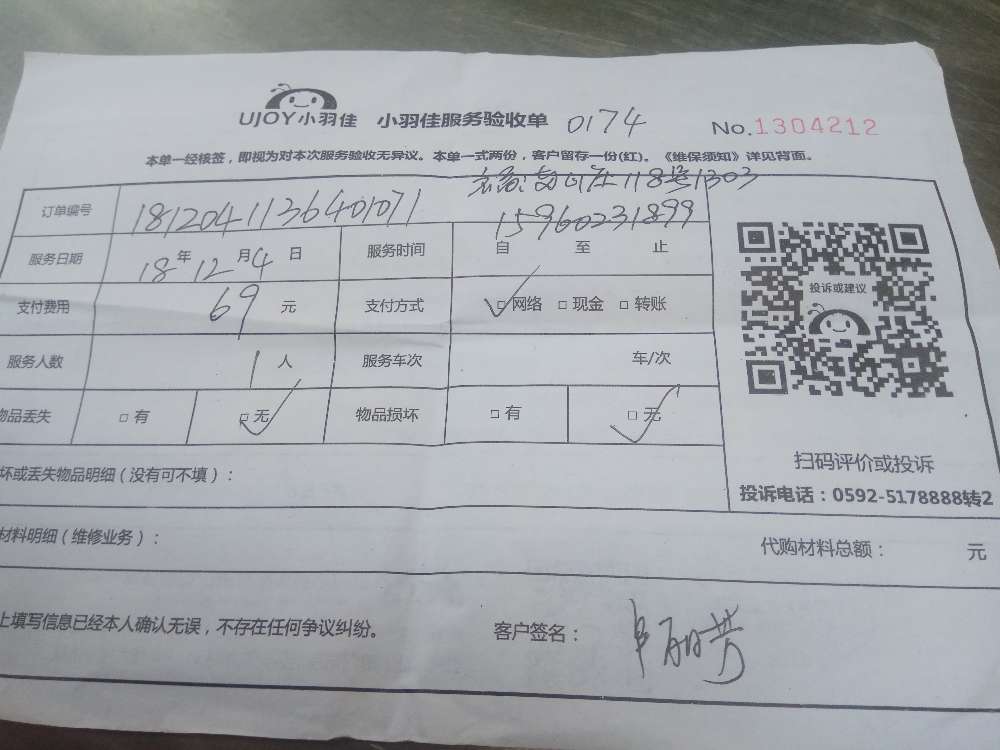 UJOY小羽佳 小羽佳服务验收单 0174 No.1304212
本单一经核签，即视为对本次服务验收无异议。本单一式两份，客户留存一份(红)。《维保须知》详见背面。
118号1303
订单编号 181204113640101071 15960231899
服务日期 18年12月4日 服务时间 自 至 止
支付费用 69元 支付方式 □网络 □现金 □转账
投诉或建议
服务人数 1人 服务车次 车/次
物品丢失 □有 □无 物品损坏 □有 □无
扫码评价或投诉
坏或丢失物品明细（没有可不填）：
投诉电话：0592-5178888转2
材料明细（维修业务）： 代购材料总额： 元
上填写信息已经本人确认无误，不存在任何争议纠纷。 客户签名：